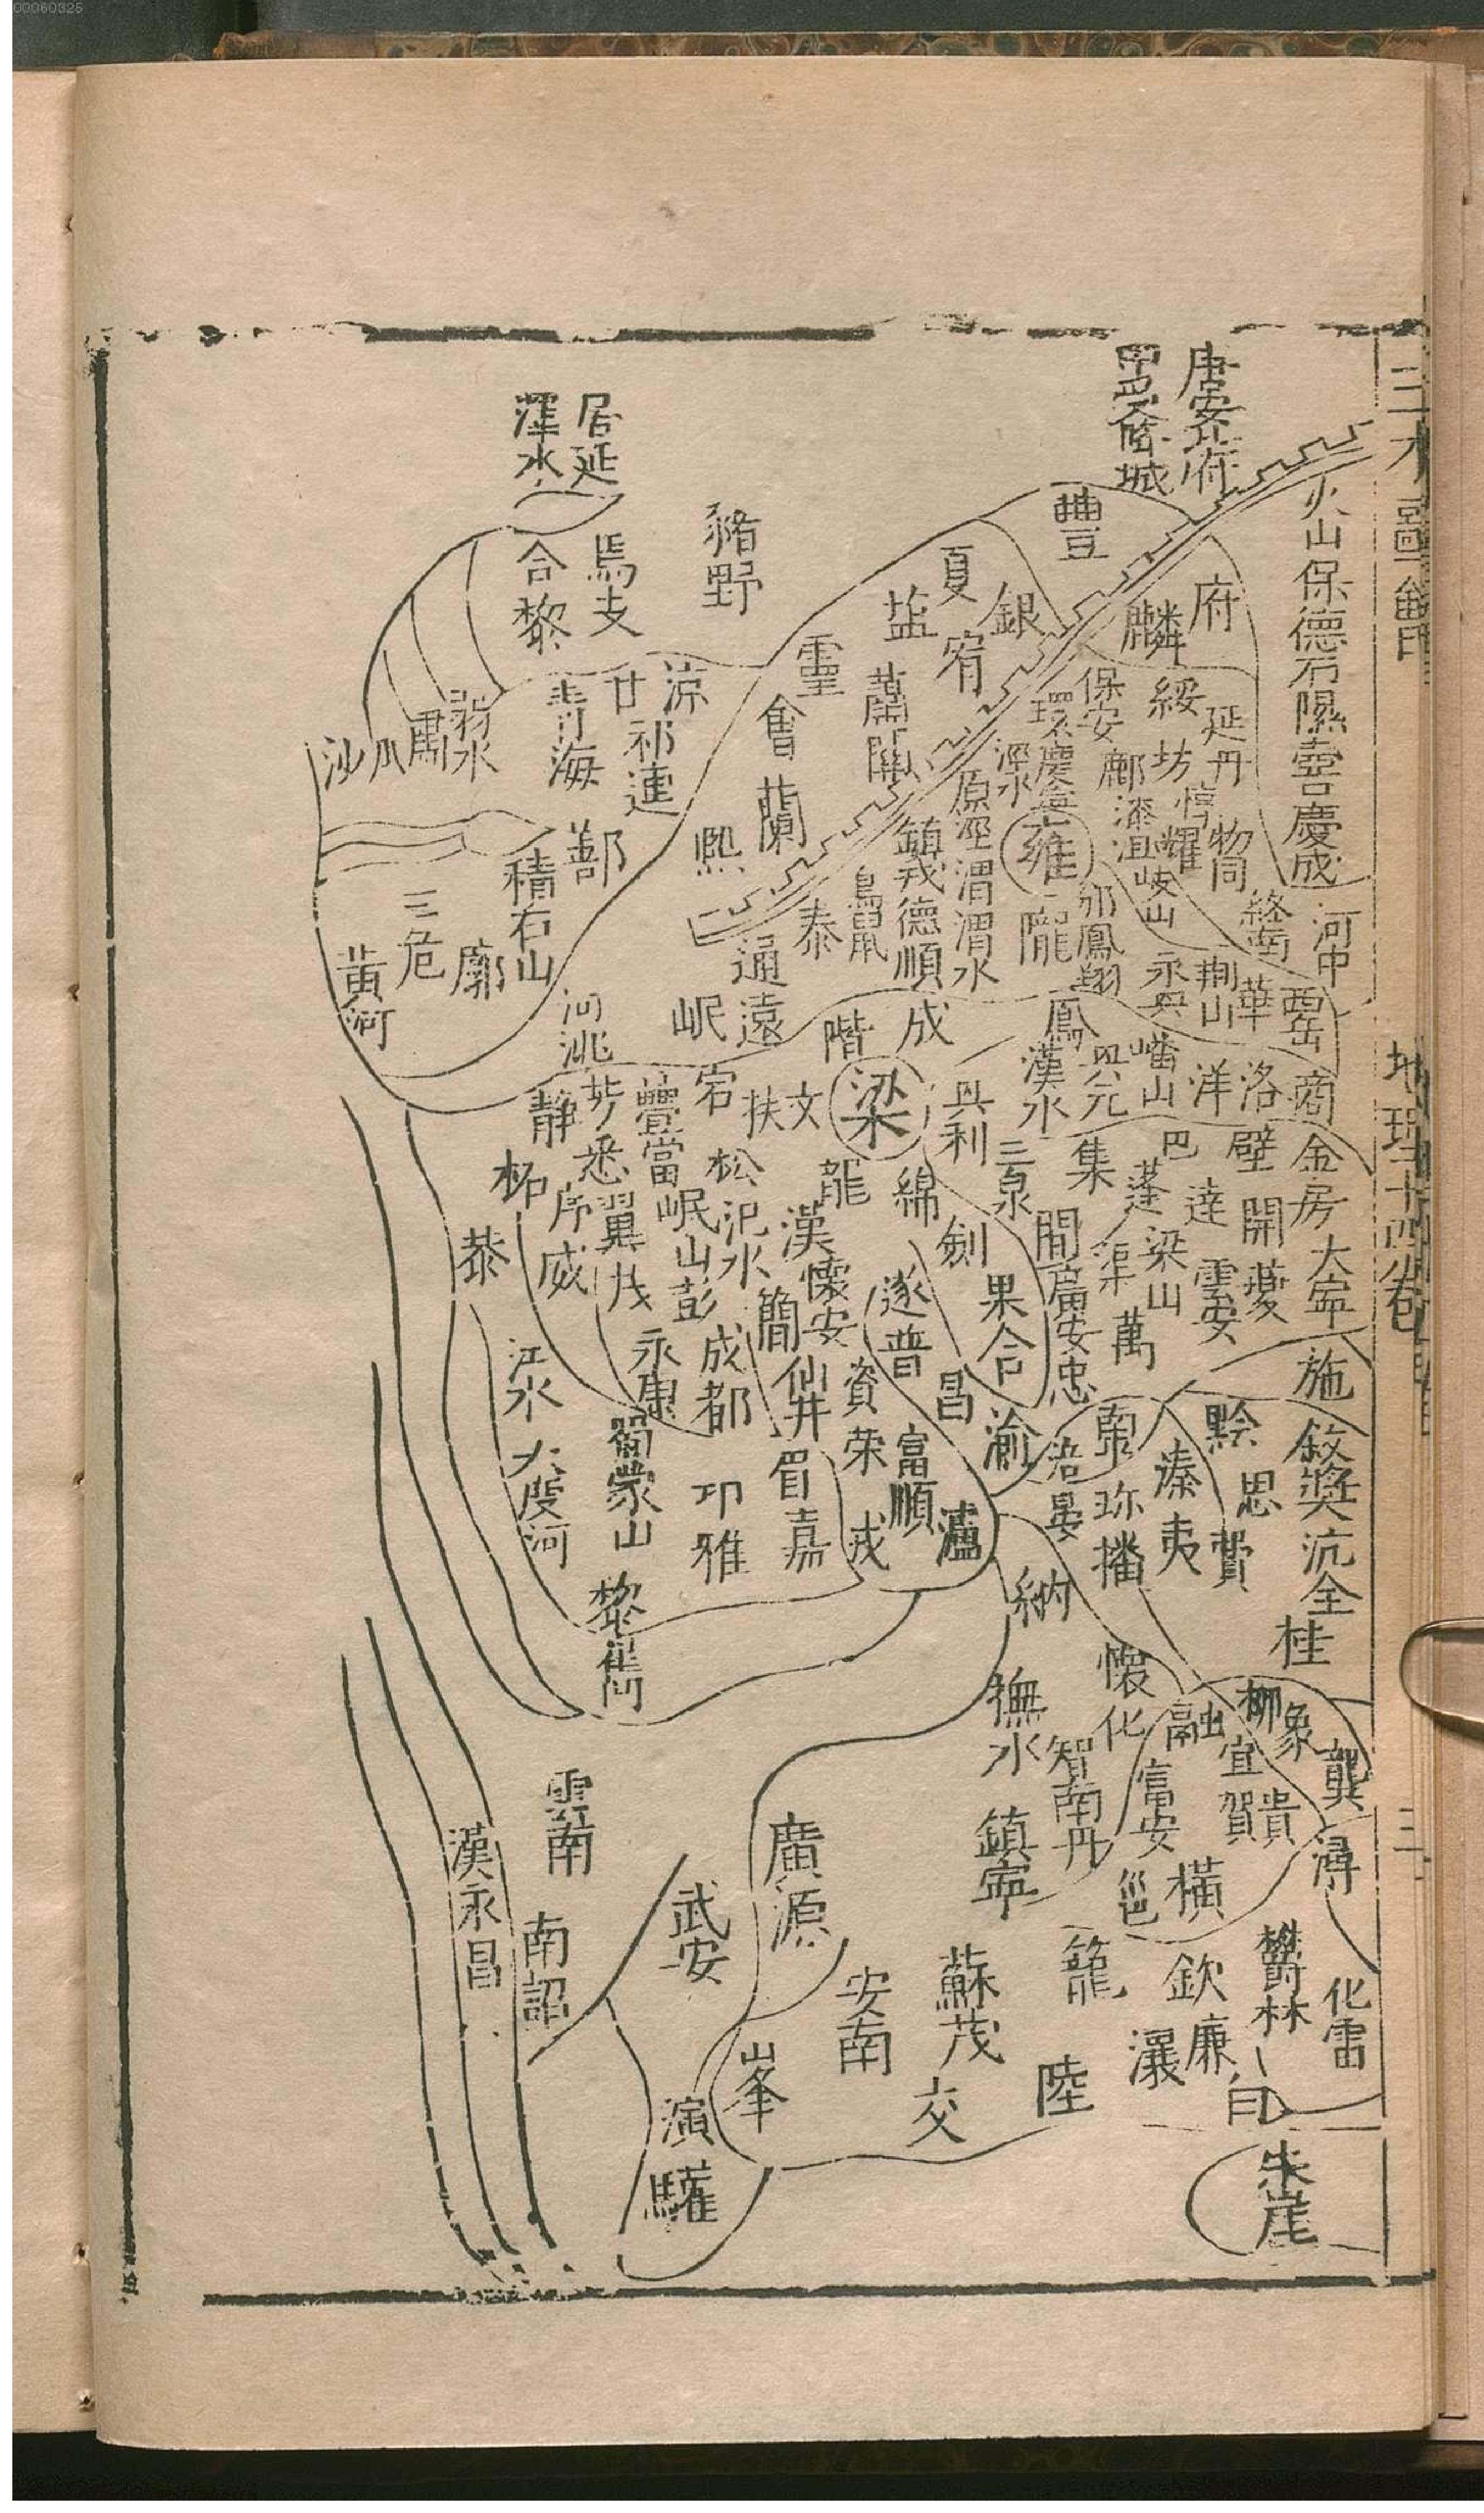 00060325
三才圖會
地理十四卷
三
唐安府
中受降城
火山保德石隰雲慶成
河中
居延
澤水
合黎
焉支
豬野
豐
夏
銀
鹽
宥
府
麟
靈
會
蘭
蕭關
保安
綏
延
丹
環慶寧
鄜
坊
涇水
原涇渭渭水
鎮戎德順
雍
漆沮
耀
同
岐山
隴
邠鳳翔
永興
荆山
華
西岳
涼
甘
祁連
青海
弱水
肅
瓜
沙
鄯
積石山
三危
廓
黄河
熙
通遠
泰
鳥鼠
岷
河
洮
階
成
鳳
漢水
興元
嶓山
洋
洛
商
梁
文
扶
宕
疊當
靜
悉
柘
翼
茂
威
恭
松
岷山
彭
龍
綿
興利
三泉
集
巴
壁
金房
蓬
達
開
大寧
劍
閬
渠
梁山
雲安
夔
漢
懷安
簡
遂
普
果
合
廣安
忠
萬
施
永康
成都
仙井
資
昌
渝
榮
富順
瀘
戎
眉
嘉
江水
大度河
蒙山
邛
雅
黎
涪
南
珍
播
溱
夷
黔
思
費
敘奬沅全
桂
納
懷化
撫水
智
南丹
鎮寧
融
柳
象
宜
富安
賀
貴
龔
潯
橫
邕
籠
欽
廉
鬱林
化
雷
白
蘇茂
陸
瀼
交
朱崖
廣源
安南
武安
峯
演
驩
雲南
南詔
漢永昌